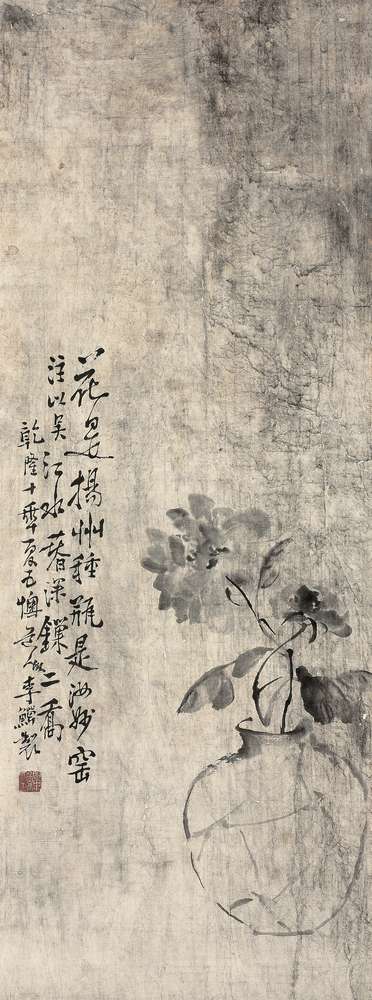 花是揚州種瓶是汝州窑
注以吳江水春深鏁二喬
乾隆十秊夏五懊道人李鱓製